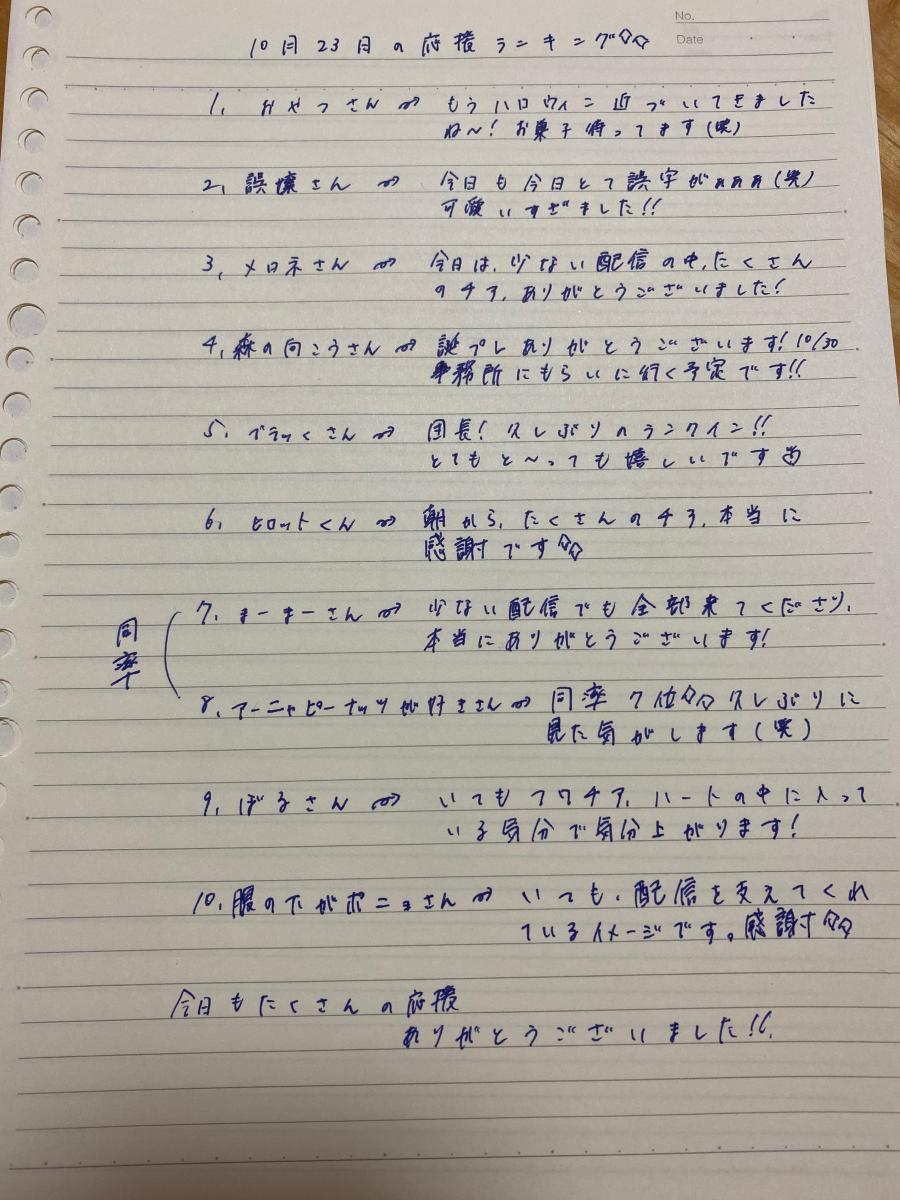 No.
Date
10月23日の応援ランキング☆☆
1, おやつさん⇝ もうハロウィン近づいてきました
ね〜!お菓子待ってます(笑)
2, 誤爆さん⇝ 今日も今日とて誤字がぁぁぁ(笑)
可愛いすぎました!!
3, メロネさん⇝ 今日は、少ない配信の中、たくさん
のチア、ありがとうございました!
4, 森の向こうさん⇝ 誕プレありがとうございます!10/30
事務所にもらいに行く予定です!!
5, ブラッくさん⇝ 団長!久しぶりのランクイン!!
とてもと〜っても嬉しいです
6, ヒロットくん⇝ 朝から、たくさんのチア、本当に
感謝です☆☆
同率
7, まーまーさん⇝ 少ない配信でも全部来てくださり、
本当にありがとうございます!
8, アーニャピーナッツが好きさん⇝ 同率7位☆☆久しぶりに
見た気がします(笑)
9, ぽるさん⇝ いつもフワチア、ハートの中に入って
いる気分で気分上がります!
10, 腹の下がポニョさん⇝ いつも、配信を支えてくれ
ているイメージです。感謝☆☆
今日もたくさんの応援
ありがとうございました!!